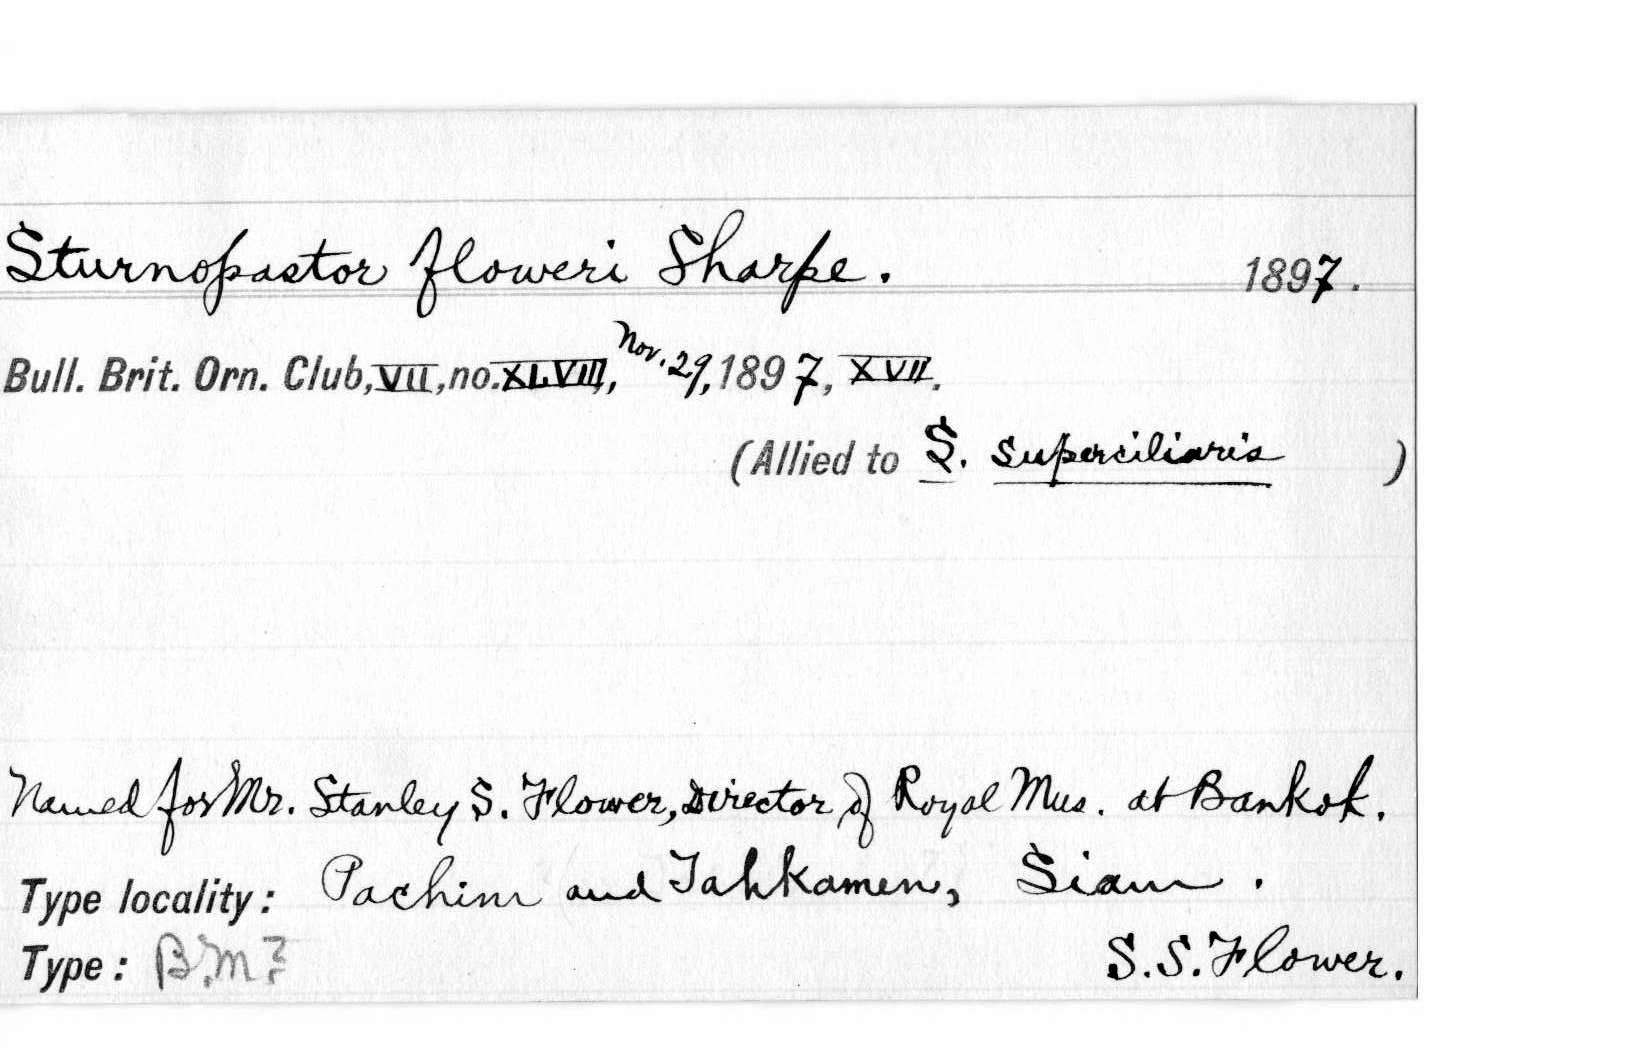 Sturnopastor floweri Sharpe. 1897.
Bull. Brit. Orn. Club, VII, no. XLVIII, Nov. 29, 1897, XVII.
(Allied to S. superciliaris )
Named for Mr. Stanley S. Flower, Director of Royal Mus. at Bankok.
Type locality: Pachim and Tahkamen, Siam.
Type: B.M.? S.S. Flower.